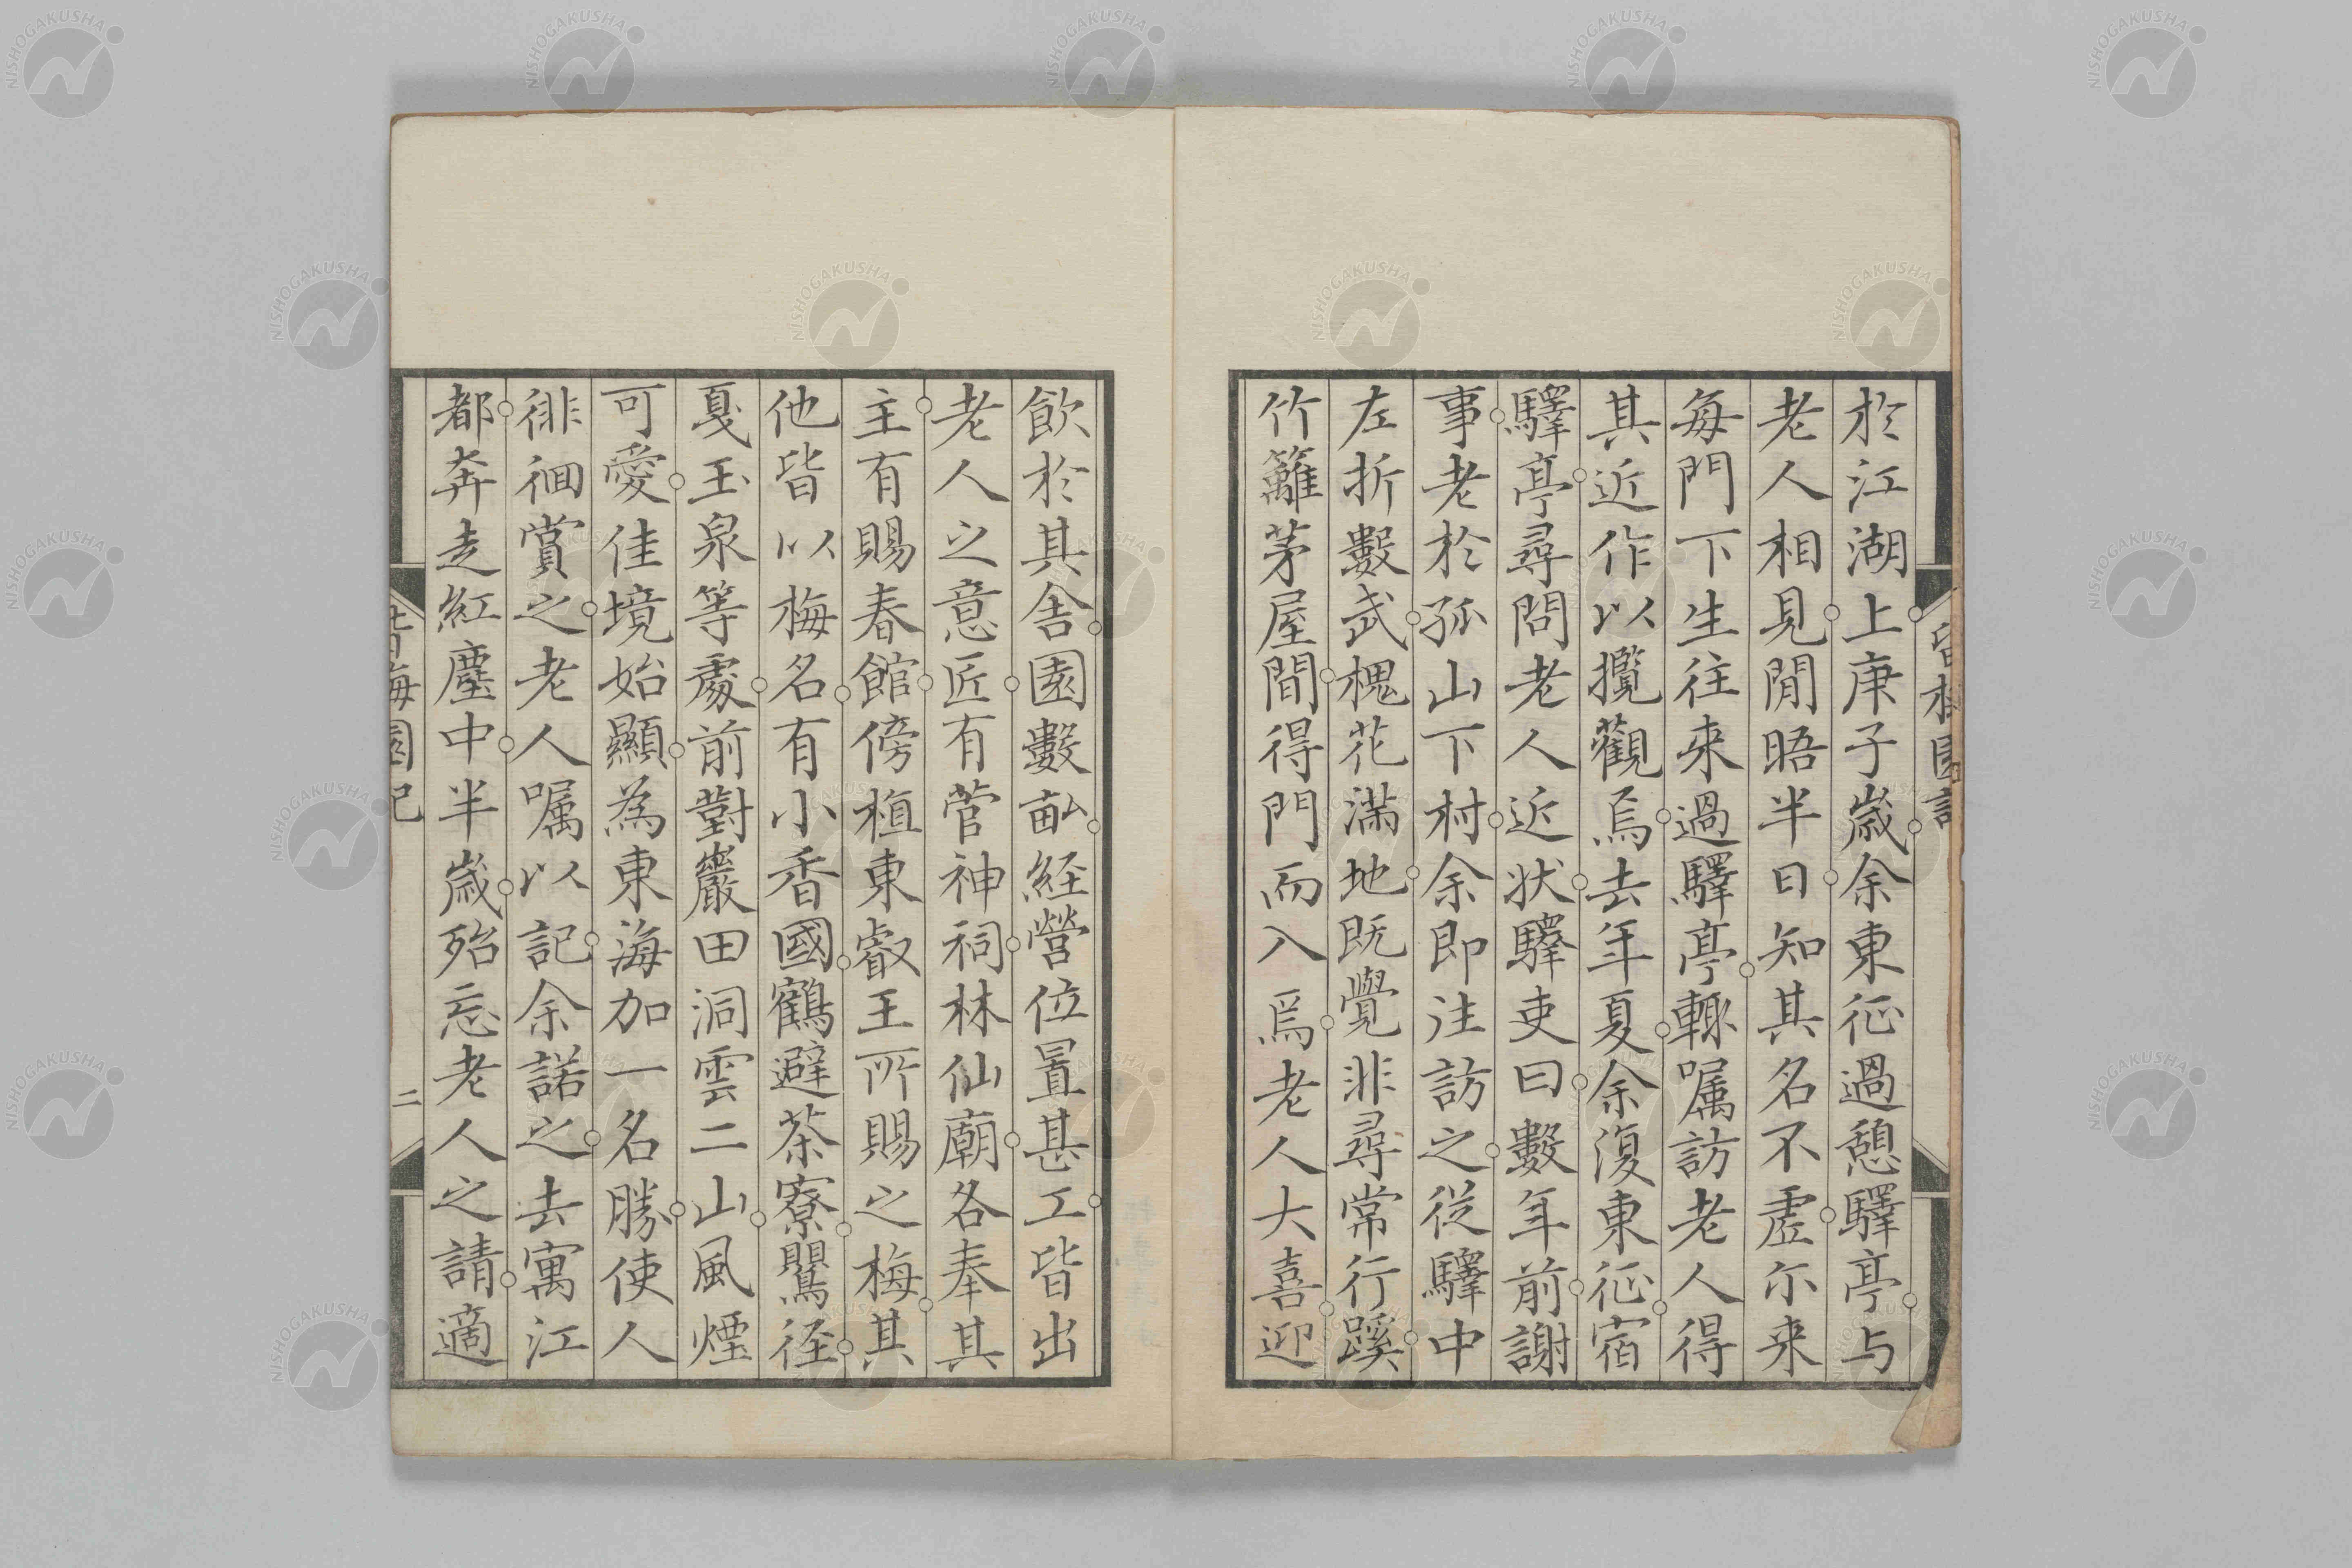 於江湖上庚子歳余東征過憩驛亭与
老人相見閒晤半日知其名不虚尓来
毎門下生往来過驛亭輙嘱訪老人得
其近作以攬觀焉去年夏余復東征宿
驛亭尋問老人近状驛吏曰數年前謝
事老於孤山下村余即往訪之従驛中
左折數武槐花滿地既覺非尋常行蹊
竹籬茅屋間得門而入焉老人大喜迎
飲於其舎園數畝経營位置甚工皆出
老人之意匠有菅神祠林仙廟各奉其
主有賜春館傍植東叡王所賜之梅其
他皆以梅名有小香國鶴避茶寮鸎径
戛玉泉等處前對巖田洞雲二山風煙
可愛佳境始顯為東海加一名勝使人
徘徊賞之老人嘱以記余諾之去寓江
都奔走紅塵中半歳殆忘老人之請適
二